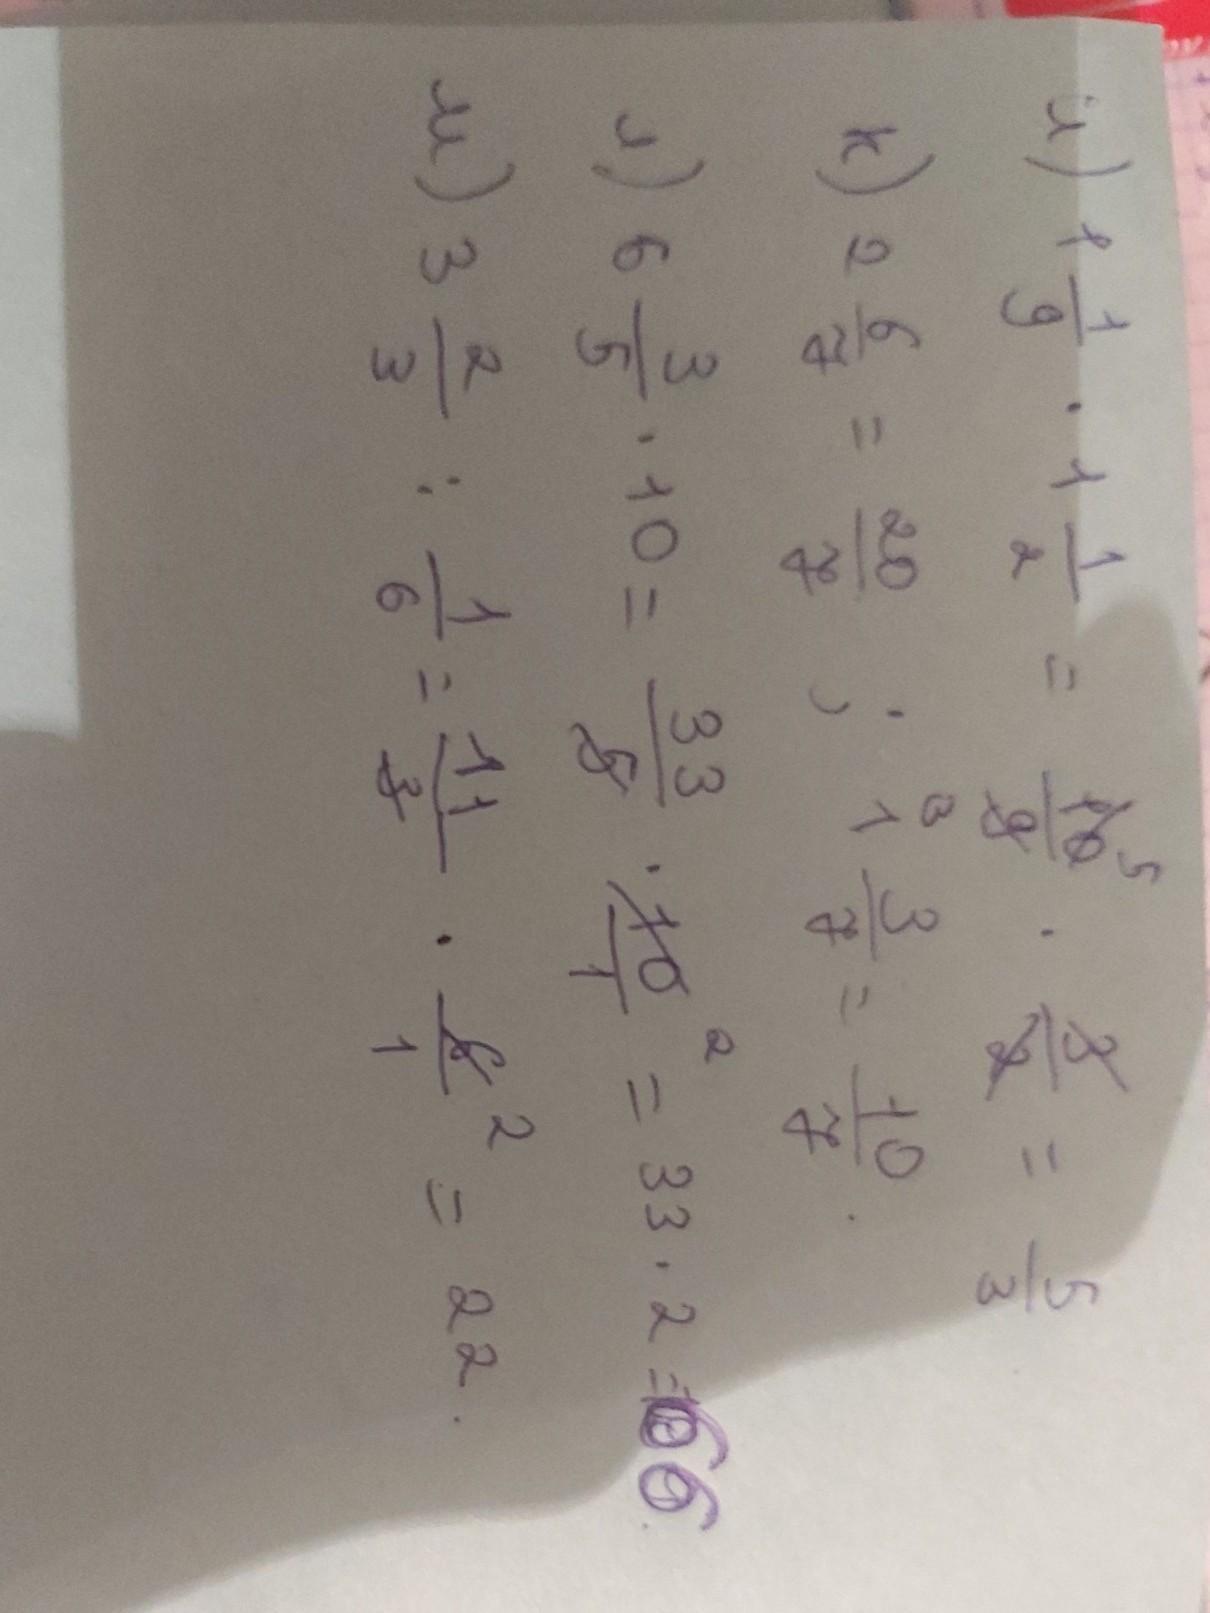 й) 1 1/9 · 1 1/2 = 10/9 5 3 · 3/2 = 5/3
к) 2 6/7 = 20/7 ; 1 3/7 = 10/7.
л) 6 3/5 · 10 = 33/5 · 10/1 2 = 33 · 2 = 66.
м) 3 2/3 : 1/6 = 11/3 · 6/1 2 = 22.